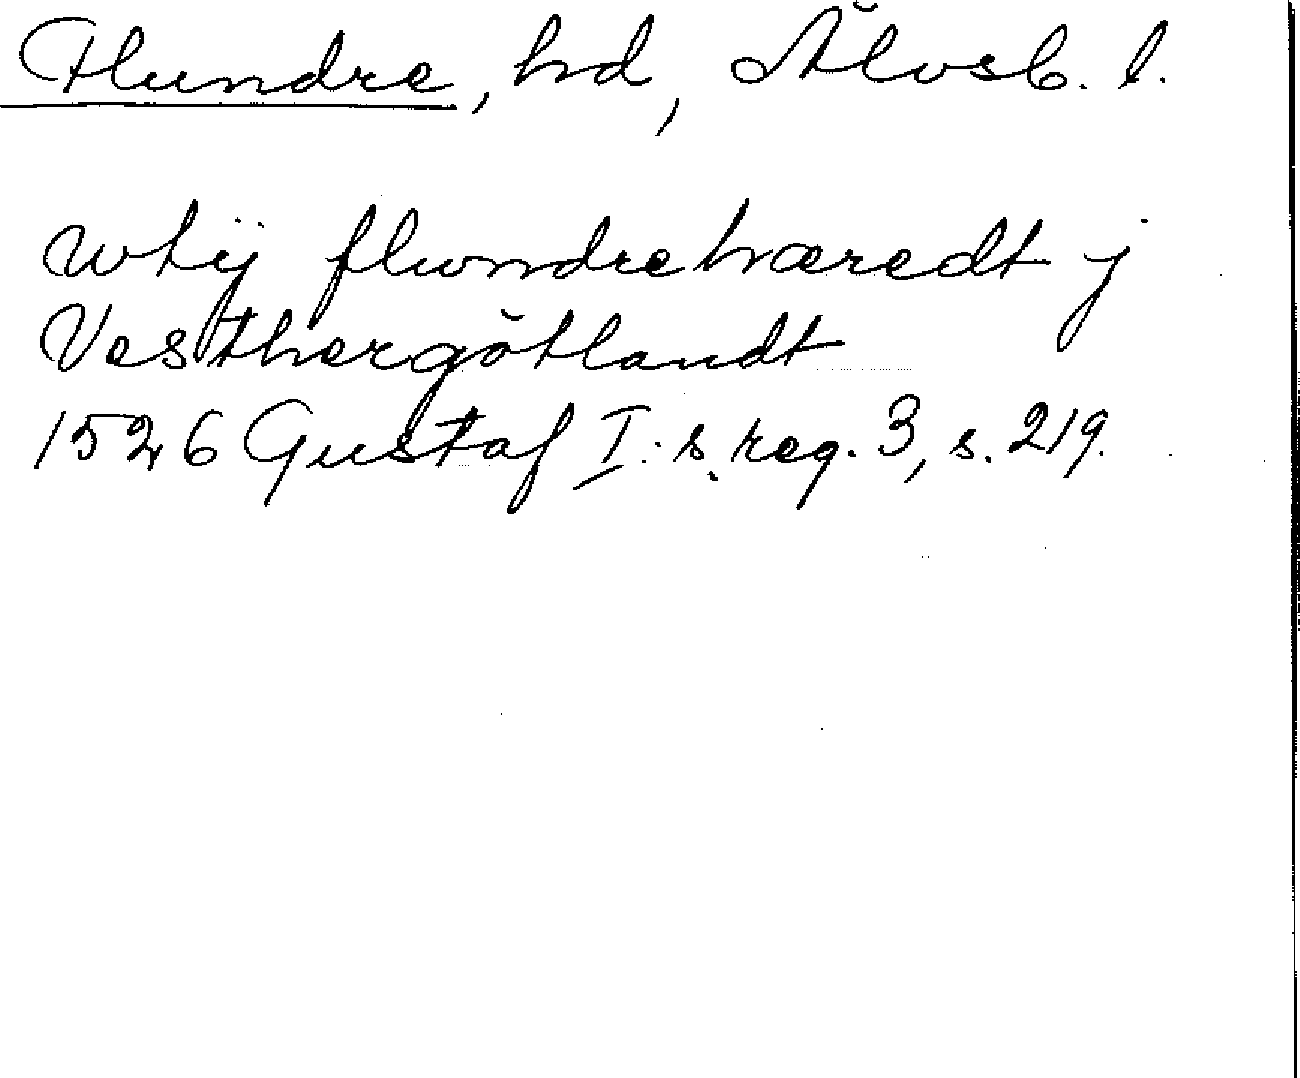 Flundre, hd, Älvsb. l.
wtij flwndrehæredt j
Vesthergötlandt
1526 Gustaf I:s. reg. 3, s. 219.